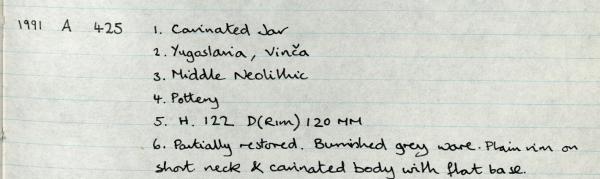 1991 A 425 1. Carinated Jar
2. Yugoslavia, Vinča
3. Middle Neolithic
4. Pottery
5. H. 122 D(Rim) 120 MM
6. Partially restored. Burnished grey ware. Plain rim on
short neck & carinated body with flat base.